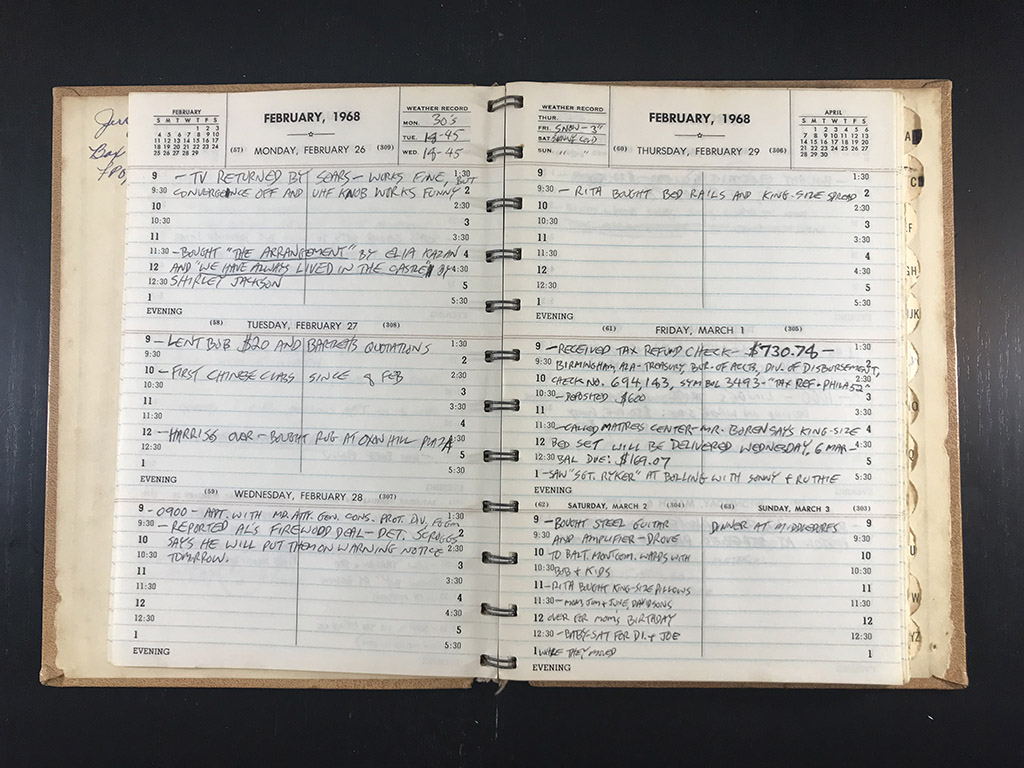 Box
FEBRUARY
S M T W T F S
1 2 3
4 5 6 7 8 9 10
11 12 13 14 15 16 17
18 19 20 21 22 23 24
25 26 27 28 29
FEBRUARY, 1968
WEATHER RECORD
MON. 30's
TUE. 19-45
WED. 19-45
(57) MONDAY, FEBRUARY 26 (309)
9 - TV RETURNED BY SEARS - WORKS FINE, BUT 1:30
9:30 CONVERGENCE OFF AND UHF KNOB WORKS FUNNY 2
10 2:30
10:30 3
11 3:30
11:30 - BOUGHT "THE ARRANGEMENT" BY ELIA KAZAN 4
12 AND "WE HAVE ALWAYS LIVED IN THE CASTLE" BY 4:30
12:30 SHIRLEY JACKSON 5
1 5:30
EVENING
(58) TUESDAY, FEBRUARY 27 (308)
9 - LENT BOB $20 AND BARTLETT'S QUOTATIONS 1:30
9:30 2
10 - FIRST CHINESE CLASS SINCE 9 FEB 2:30
10:30 3
11 3:30
11:30 4
12 - HARRISS OVER - BOUGHT RUG AT OXON HILL PLAZA 4:30
12:30 5
1 5:30
EVENING
(59) WEDNESDAY, FEBRUARY 28 (307)
9 - 0900 - APPT. WITH MD. ATTY. GEN. CONS. PROT. DIV, 1:30
9:30 - REPORTED AL'S FIREWOOD DEAL - DET. SCROGGS 2
10 SAYS HE WILL PUT THEM ON WARNING NOTICE 2:30
TOMORROW. 3
11 3:30
11:30 4
12 4:30
12:30 5
1 5:30
EVENING
WEATHER RECORD
THUR.
FRI. SNOW - 3"
SAT. COLD
SUN. " "
FEBRUARY, 1968
APRIL
S M T W T F S
1 2 3 4 5 6
7 8 9 10 11 12 13
14 15 16 17 18 19 20
21 22 23 24 25 26 27
28 29 30
(60) THURSDAY, FEBRUARY 29 (306)
9 1:30
9:30 - RITA BOUGHT BED RAILS AND KING-SIZE SPREAD 2
10 2:30
10:30 3
11 3:30
11:30 4
12 4:30
12:30 5
1 5:30
EVENING
(61) FRIDAY, MARCH 1 (305)
9 - RECEIVED TAX REFUND CHECK - $730.74 - 1:30
9:30 BIRMINGHAM, ALA - TREASURY, BUR. OF ACCTS, DIV. OF DISBURSEMENT, 2
10 CHECK NO. 694,143, SYMBOL 3493 - "TAX REF + PHILA 52" 2:30
10:30 - DEPOSITED $600 3
11 3:30
11:30 - CALLED MATRESS CENTER - MR. BOREN SAYS KING-SIZE 4
12 BED SET WILL BE DELIVERED WEDNESDAY, 6 MAR - 4:30
12:30 BAL DUE: $169.07 5
1 - SAW "SGT. RYKER" AT BOLLING WITH SONNY & RUTHIE 5:30
EVENING
(62) SATURDAY, MARCH 2 (304) (63) SUNDAY, MARCH 3 (303)
9 - BOUGHT STEEL GUITAR DINNER AT 9
9:30 AND AMPLIFIER - DROVE 9:30
10 TO BALT. MONTGOM. WARDS WITH 10
10:30 BOB & KIDS 10:30
11 - RITA BOUGHT KING-SIZE PILLOWS 11
11:30 - MOM, JIM & JUNE, DAVIDSONS 11:30
12 OVER FOR MOM'S BIRTHDAY 12
12:30 - BABY-SAT FOR DI & JOE 12:30
1 WHILE THEY MOVED 1
EVENING
A
C
EF
GH
IJK
O
Q
U
W
YZ